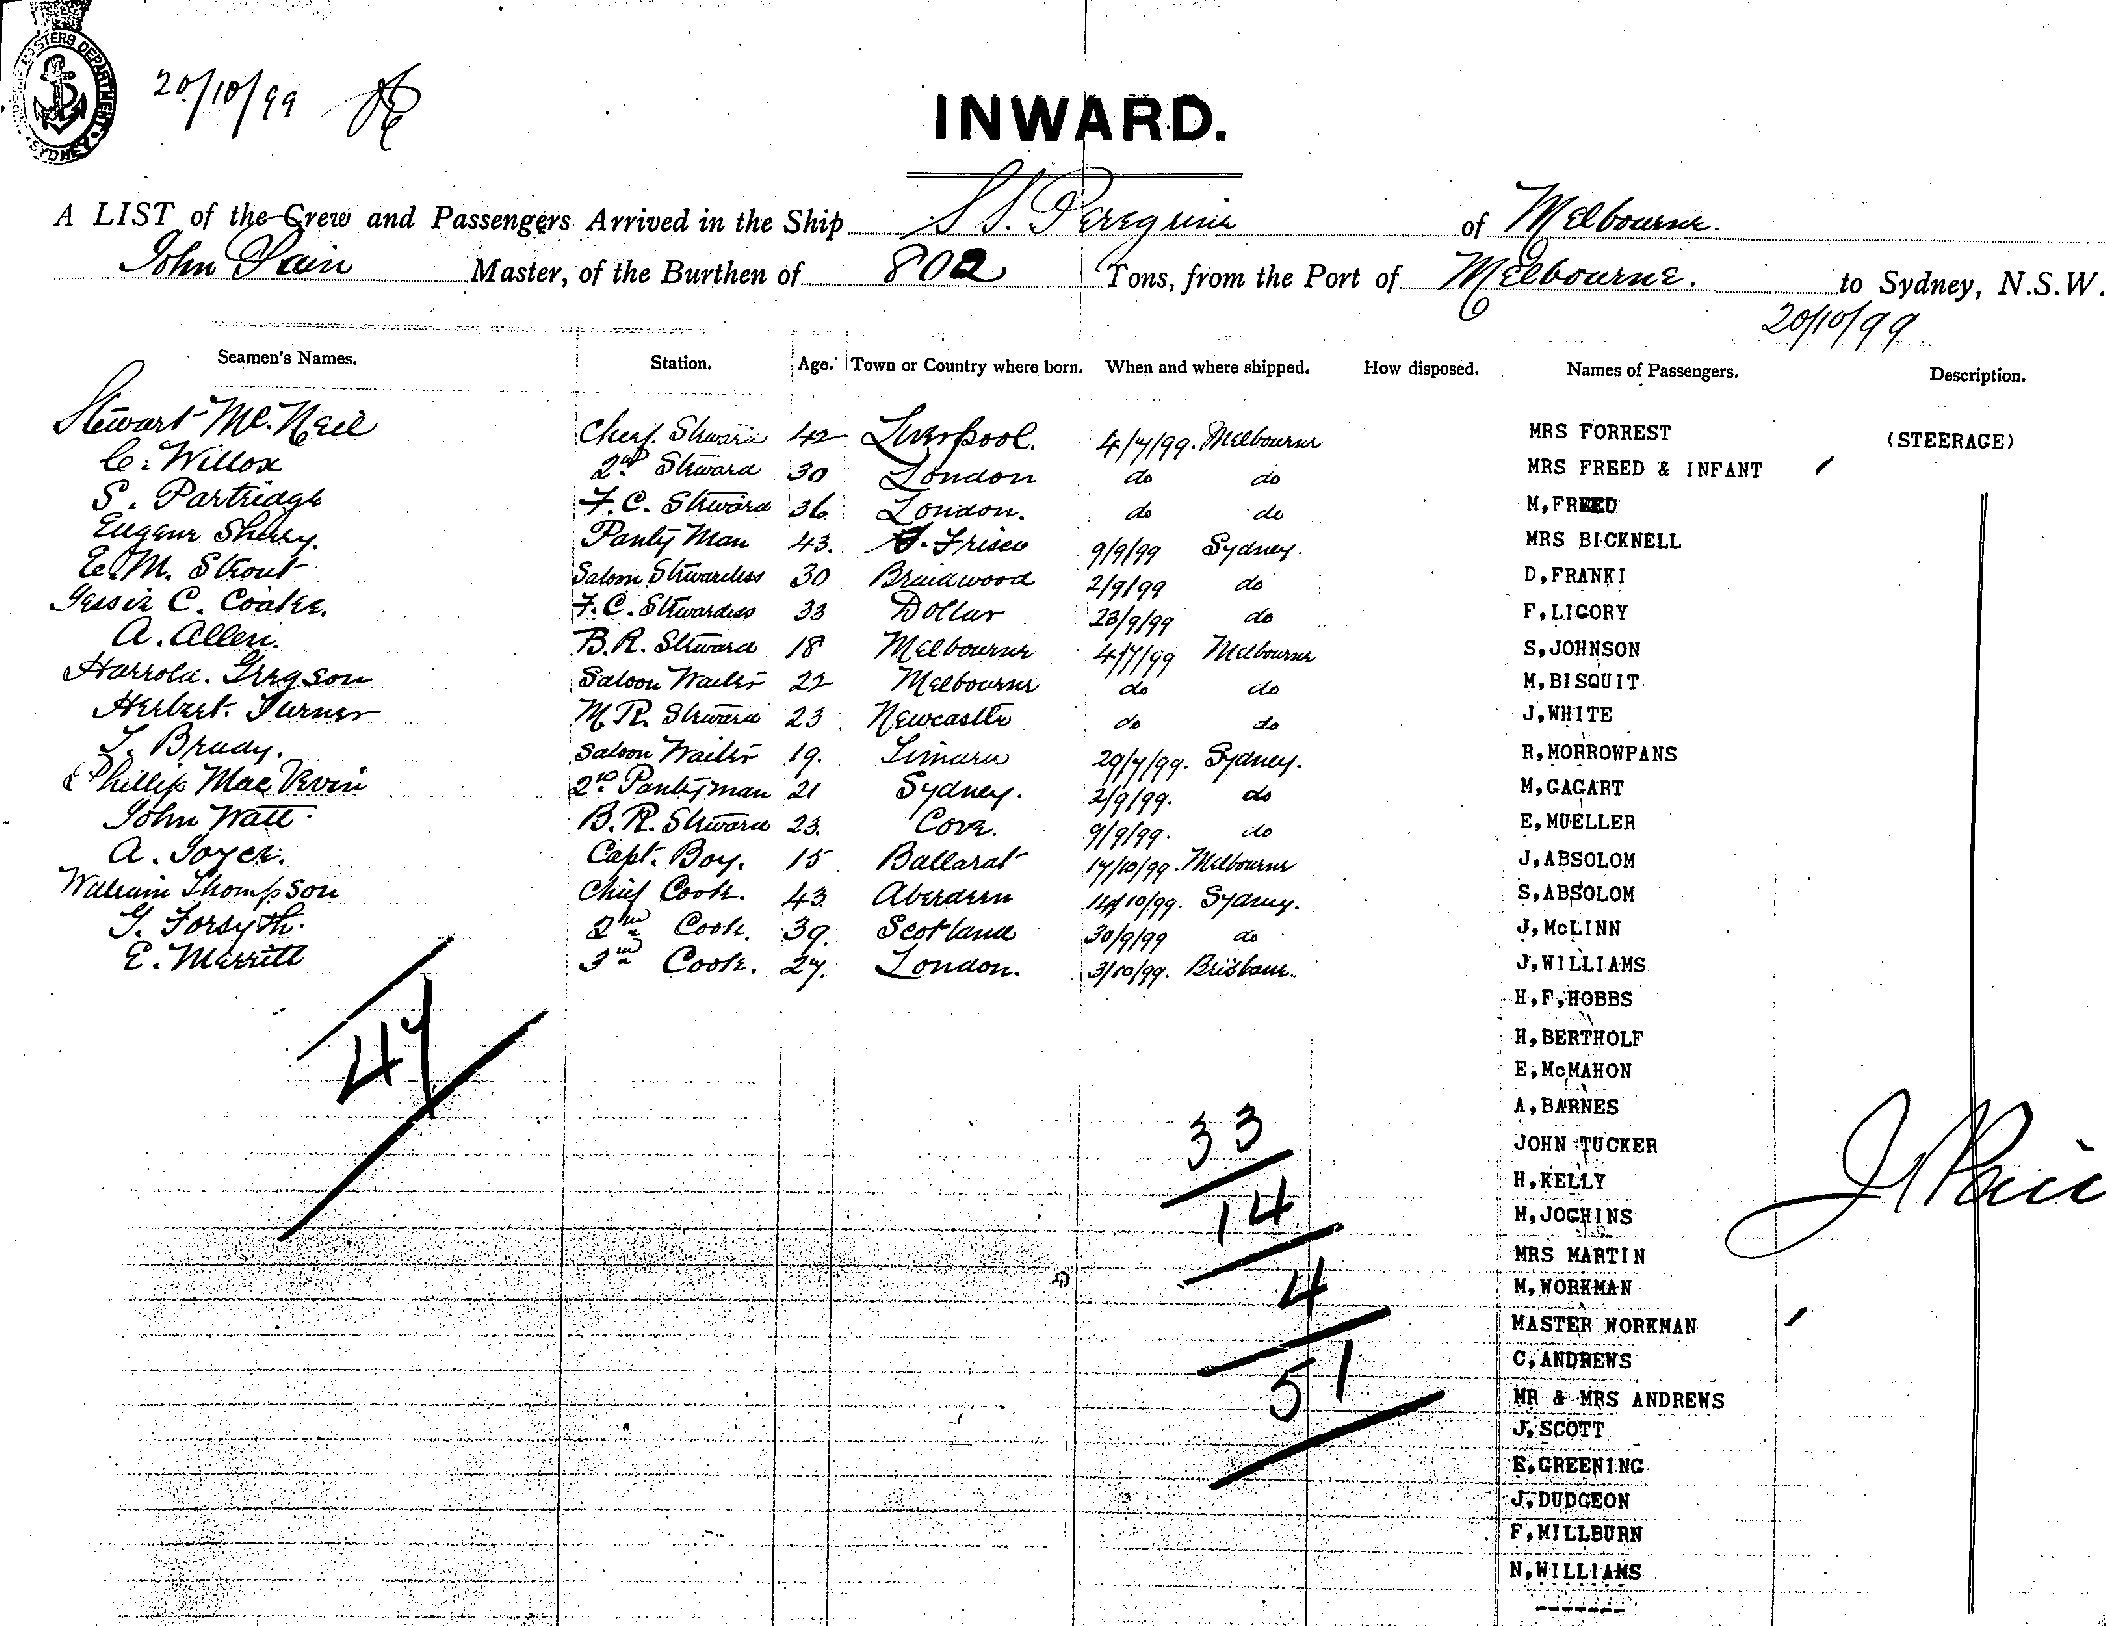 MASTERS DEPARTMENT
SYDNEY
20/10/99
INWARD.
A LIST of the Crew and Passengers Arrived in the Ship SS. Peregrine of Melbourne.
John Pain Master, of the Burthen of 802 Tons, from the Port of Melbourne. to Sydney, N.S.W.
20/10/99
Seamen's Names. Station. Age. Town or Country where born. When and where shipped. How disposed. Names of Passengers. Description.
Stewart Mc.Neil Chief Steward 42 Liverpool. 4/7/99. Melbourne MRS FORREST (STEERAGE)
C. Willox 2nd Steward 30 London do do MRS FREED & INFANT
S. Partridge F.C. Steward 36 London. do do M,FREED
Eugene Sherry. Panty Man 43. S. Frisco 9/9/99 Sydney. MRS BICKNELL
E.M. Strout Saloon Stewardess 30 Braidwood 2/9/99 do D,FRANKI
Jessie C. Coake. F.C. Stewardess 33 Dollar 23/9/99 do F,LIGORY
A. Allen. B.R. Steward 18 Melbourne 4/7/99 Melbourne S,JOHNSON
Harrold. Gregson Saloon Waiter 22 Melbourne do do M,BISQUIT
Herbert. Turner M.R. Steward 23 Newcastle do do J,WHITE
T. Brady. Saloon Waiter 19. Timaru 29/7/99. Sydney. R,MORROWPANS
Phillip Mac Vivin 2nd Pantryman 21 Sydney. 2/9/99. do M,GAGART
John Watt. B.R. Steward 23. Cork. 9/9/99. do E,MUELLER
A. Joyce. Capt. Boy. 15 Ballarat 17/10/99. Melbourne J,ABSOLOM
William Thompson Chief Cook. 43 Aberdeen 14/10/99. Sydney. S,ABSOLOM
G. Forsyth. 2nd Cook. 39. Scotland 30/9/99 do J,McLINN
E. Merritt 3rd Cook. 27. London. 3/10/99. Brisbane. J,WILLIAMS
H,F,HOBBS
H,BERTHOLF
47
E,McMAHON
A,BARNES
33
JOHN TUCKER
H,KELLY
J Pain
14
M,JOGHINS
MRS MARTIN
4
M,WORKMAN
MASTER WORKMAN
51
C,ANDREWS
MR & MRS ANDREWS
J,SCOTT
E,GREENING
J,DUDGEON
F,MILLBURN
N,WILLIAMS